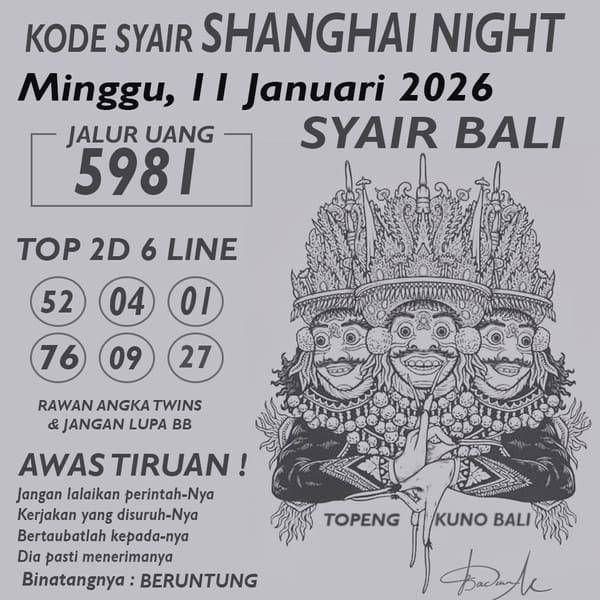 KODE SYAIR SHANGHAI NIGHT
Minggu, 11 Januari 2026
JALUR UANG
5981
SYAIR BALI
TOP 2D 6 LINE
52 04 01
76 09 27
RAWAN ANGKA TWINS
& JANGAN LUPA BB
AWAS TIRUAN !
Jangan lalaikan perintah-Nya
Kerjakan yang disuruh-Nya
Bertaubatlah kepada-nya
Dia pasti menerimanya
Binatangnya : BERUNTUNG
TOPENG KUNO BALI